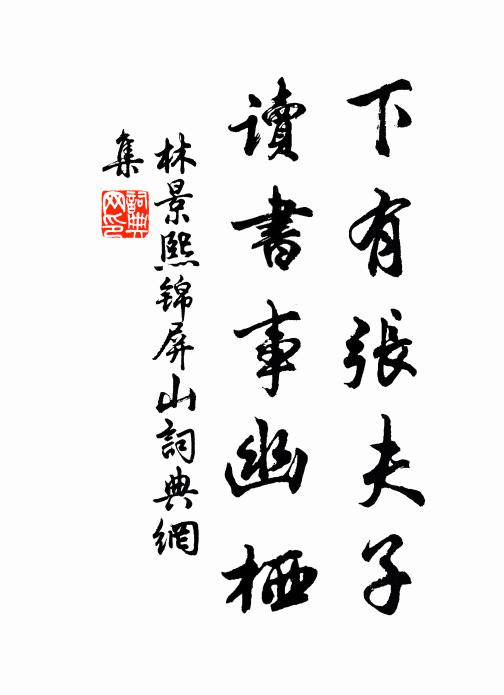 下有張夫子
讀書事幽栖
林景熙錦屏山詞典網
集
詞典
网印